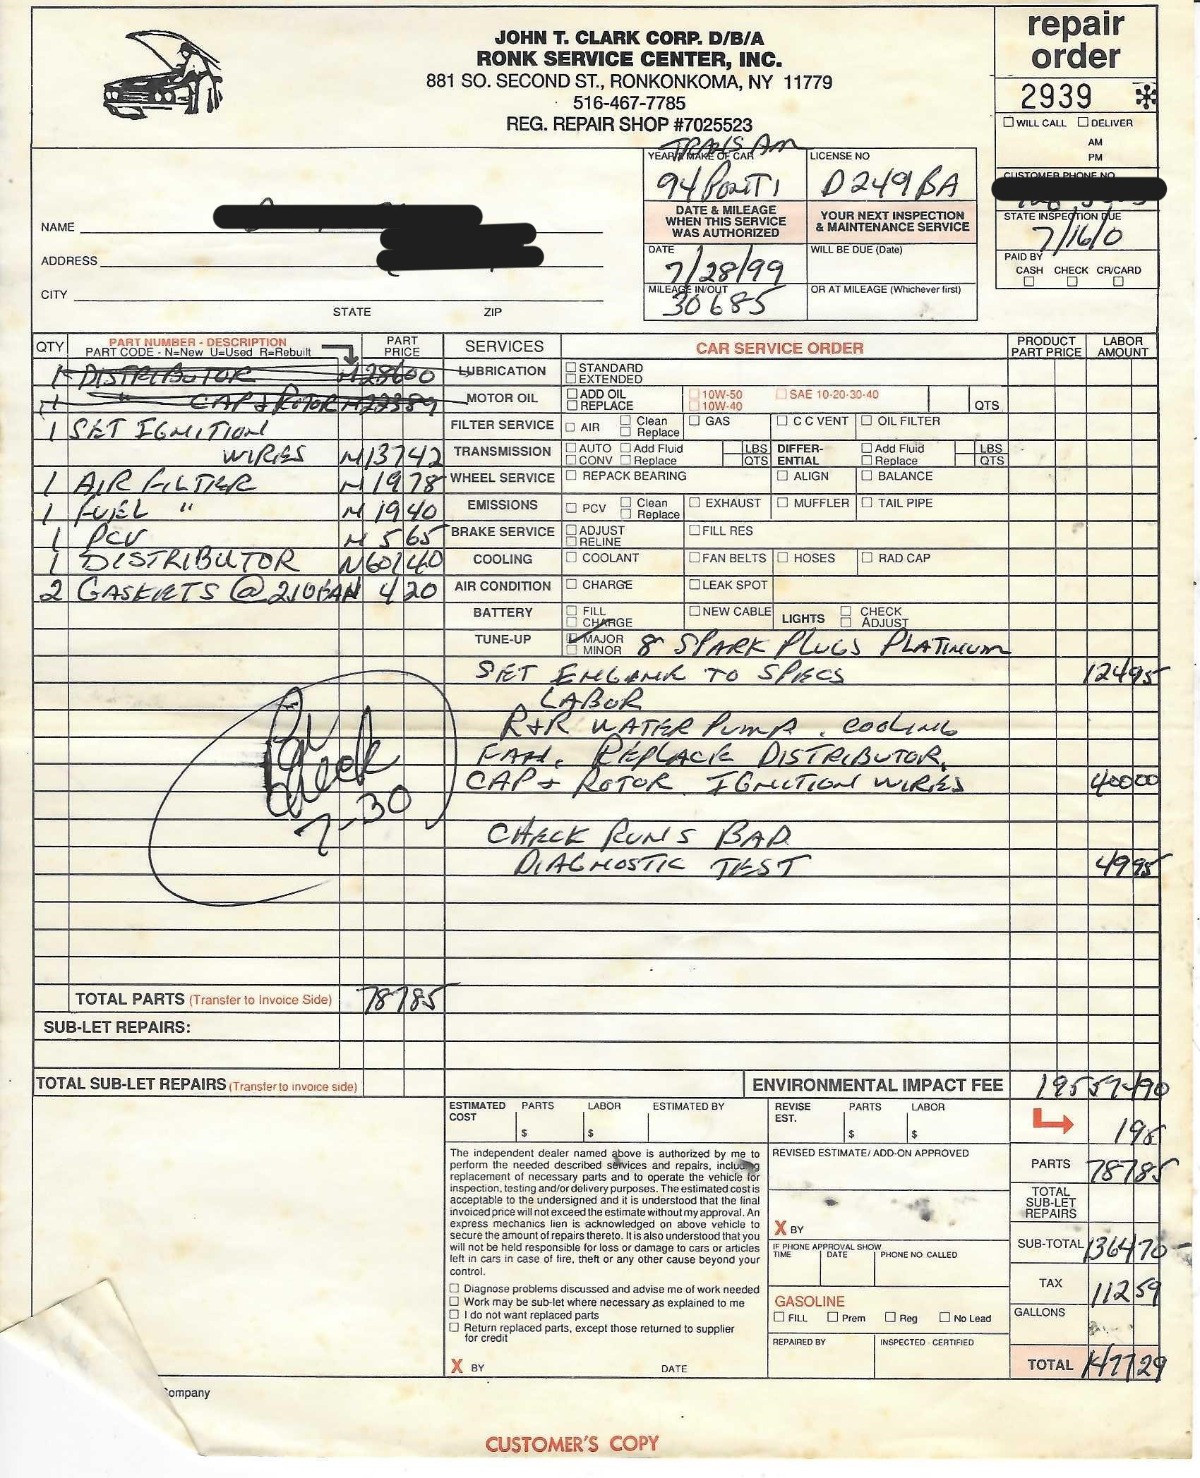 JOHN T. CLARK CORP. D/B/A
RONK SERVICE CENTER, INC.
881 SO. SECOND ST., RONKONKOMA, NY 11779
516-467-7785
REG. REPAIR SHOP #7025523
repair
order
2939
WILL CALL DELIVER
AM
PM
CUSTOMER PHONE NO
STATE INSPECTION DUE
7/16/0
PAID BY
CASH CHECK CR/CARD
TRANS AM
YEAR & MAKE OF CAR LICENSE NO
94 PONTI D249BA
DATE & MILEAGE WHEN THIS SERVICE WAS AUTHORIZED
YOUR NEXT INSPECTION & MAINTENANCE SERVICE
DATE WILL BE DUE (Date)
7/28/99
MILEAGE IN/OUT OR AT MILEAGE (Whichever first)
30685
NAME
ADDRESS
CITY
STATE ZIP
QTY PART NUMBER - DESCRIPTION PART PRICE
PART CODE - N=New U=Used R=Rebuilt
1 DISTRIBUTOR N 28600
1 " CAP & ROTOR N
1 SET IGNITION
WIRES N 13742
1 AIR FILTER N 1978
1 FUEL " N 1940
1 PCV N 565
1 DISTRIBUTOR N 60140
2 GASKETS @ 210 EA N 420
SERVICES CAR SERVICE ORDER PRODUCT PART PRICE LABOR AMOUNT
LUBRICATION STANDARD EXTENDED
MOTOR OIL ADD OIL REPLACE 10W-50 10W-40 SAE 10-20-30-40 QTS
FILTER SERVICE AIR Clean Replace GAS C C VENT OIL FILTER
TRANSMISSION AUTO CONV Add Fluid Replace LBS QTS DIFFER-ENTIAL Add Fluid Replace LBS QTS
WHEEL SERVICE REPACK BEARING ALIGN BALANCE
EMISSIONS PCV Clean Replace EXHAUST MUFFLER TAIL PIPE
BRAKE SERVICE ADJUST RELINE FILL RES
COOLING COOLANT FAN BELTS HOSES RAD CAP
AIR CONDITION CHARGE LEAK SPOT
BATTERY FILL CHARGE NEW CABLE LIGHTS CHECK ADJUST
TUNE-UP MAJOR MINOR 8 SPARK PLUGS PLATINUM
SET ENGINE TO SPECS 12495
LABOR
R+R WATER PUMP, COOLING
FAN, REPLACE DISTRIBUTOR,
CAP & ROTOR IGNITION WIRES 40000
CHECK RUNS BAD
DIAGNOSTIC TEST 4995
Check
7-30
TOTAL PARTS (Transfer to Invoice Side) 78785
SUB-LET REPAIRS:
TOTAL SUB-LET REPAIRS (Transfer to invoice side)
ENVIRONMENTAL IMPACT FEE
ESTIMATED COST PARTS $ LABOR $ ESTIMATED BY
REVISE EST. PARTS $ LABOR $
The independent dealer named above is authorized by me to
perform the needed described services and repairs, including
replacement of necessary parts and to operate the vehicle for
inspection, testing and/or delivery purposes. The estimated cost is
acceptable to the undersigned and it is understood that the final
invoiced price will not exceed the estimate without my approval. An
express mechanics lien is acknowledged on above vehicle to
secure the amount of repairs thereto. It is also understood that you
will not be held responsible for loss or damage to cars or articles
left in cars in case of fire, theft or any other cause beyond your
control.
Diagnose problems discussed and advise me of work needed
Work may be sub-let where necessary as explained to me
I do not want replaced parts
Return replaced parts, except those returned to supplier
for credit
X BY DATE
REVISED ESTIMATE/ ADD-ON APPROVED
X BY
IF PHONE APPROVAL SHOW
TIME DATE PHONE NO. CALLED
GASOLINE
FILL Prem Reg No Lead
REPAIRED BY INSPECTED - CERTIFIED
195
PARTS 78785
TOTAL SUB-LET REPAIRS
SUB-TOTAL 136470
TAX 11259
GALLONS
TOTAL 147729
Company
CUSTOMER'S COPY